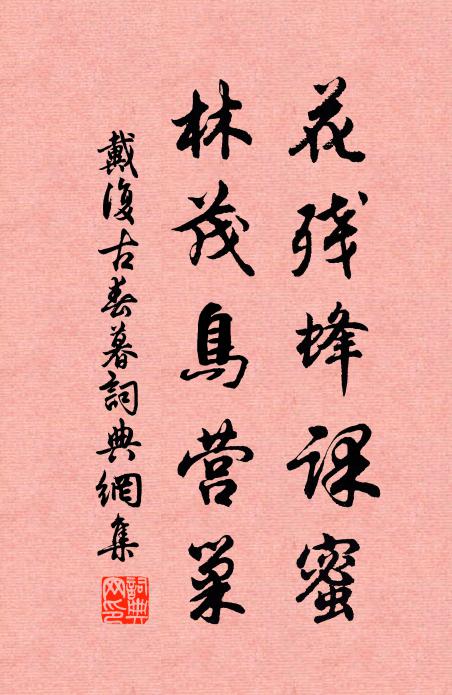 花残蜂课蜜
林茂鳥营巢
戴復古春暮詞典網集
詞典网印